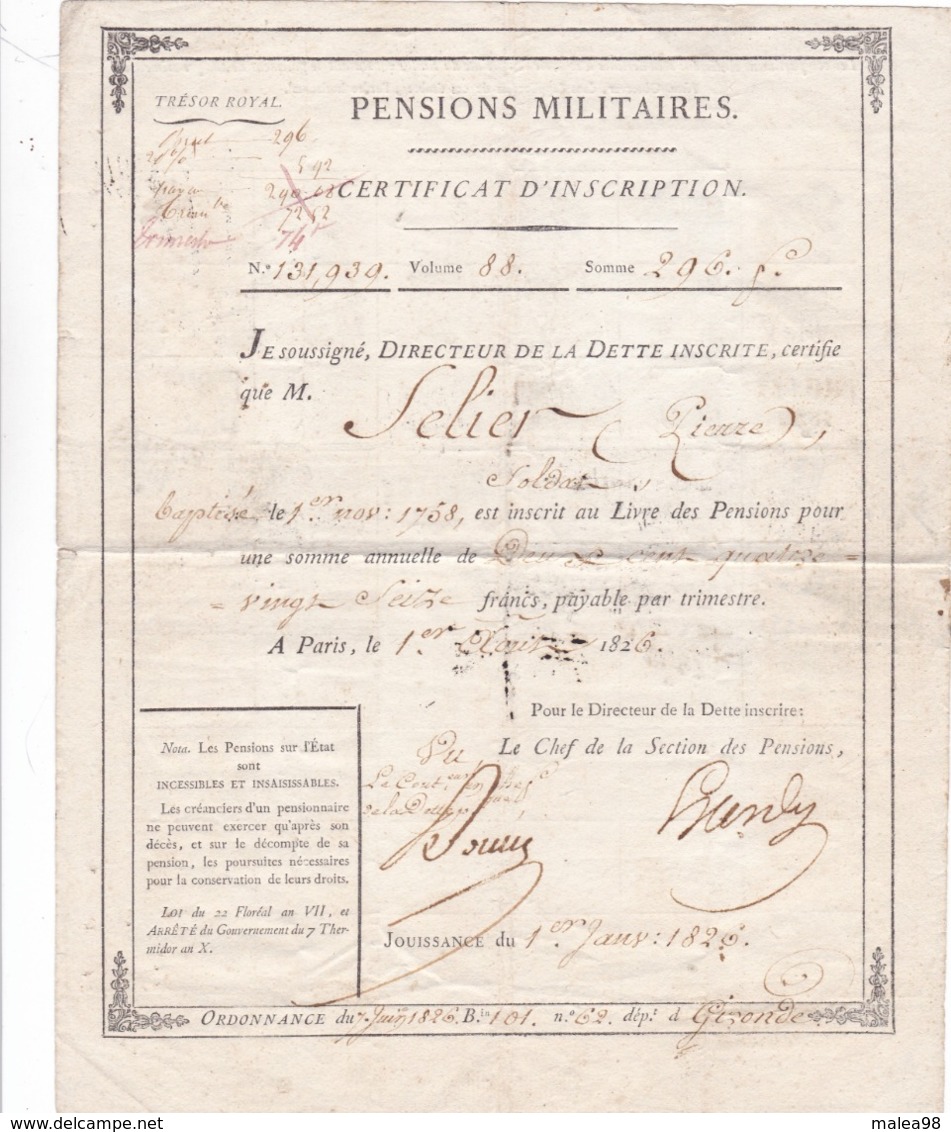 TRÉSOR ROYAL.
PENSIONS MILITAIRES.
296
5 92
CERTIFICAT D'INSCRIPTION.
72 52
74
N.º 131,939. Volume 88. Somme 296. f.c
JE soussigné, DIRECTEUR DE LA DETTE INSCRITE, certifie
que M.
Selier (Pierre),
Soldat,
baptisé le 1.er nov: 1758, est inscrit au Livre des Pensions pour
une somme annuelle de Deux cent quatre
= vingt Seize francs, payable par trimestre.
A Paris, le 1er 1826.
Pour le Directeur de la Dette inscrire:
Le Chef de la Section des Pensions,
Vu
Nota. Les Pensions sur l'État
sont
INCESSIBLES ET INSAISISSABLES.
Les créanciers d'un pensionnaire
ne peuvent exercer qu'après son
décès, et sur le décompte de sa
pension, les poursuites nécessaires
pour la conservation de leurs droits.
LOI du 22 Floréal an VII, et
ARRÊTÉ du Gouvernement du 7 Ther-
midor an X.
JOUISSANCE du 1er Janv: 1826.
ORDONNANCE du 7. Juin 1826. B.in 101. n.º 62. dép.t d Gironde
malea98